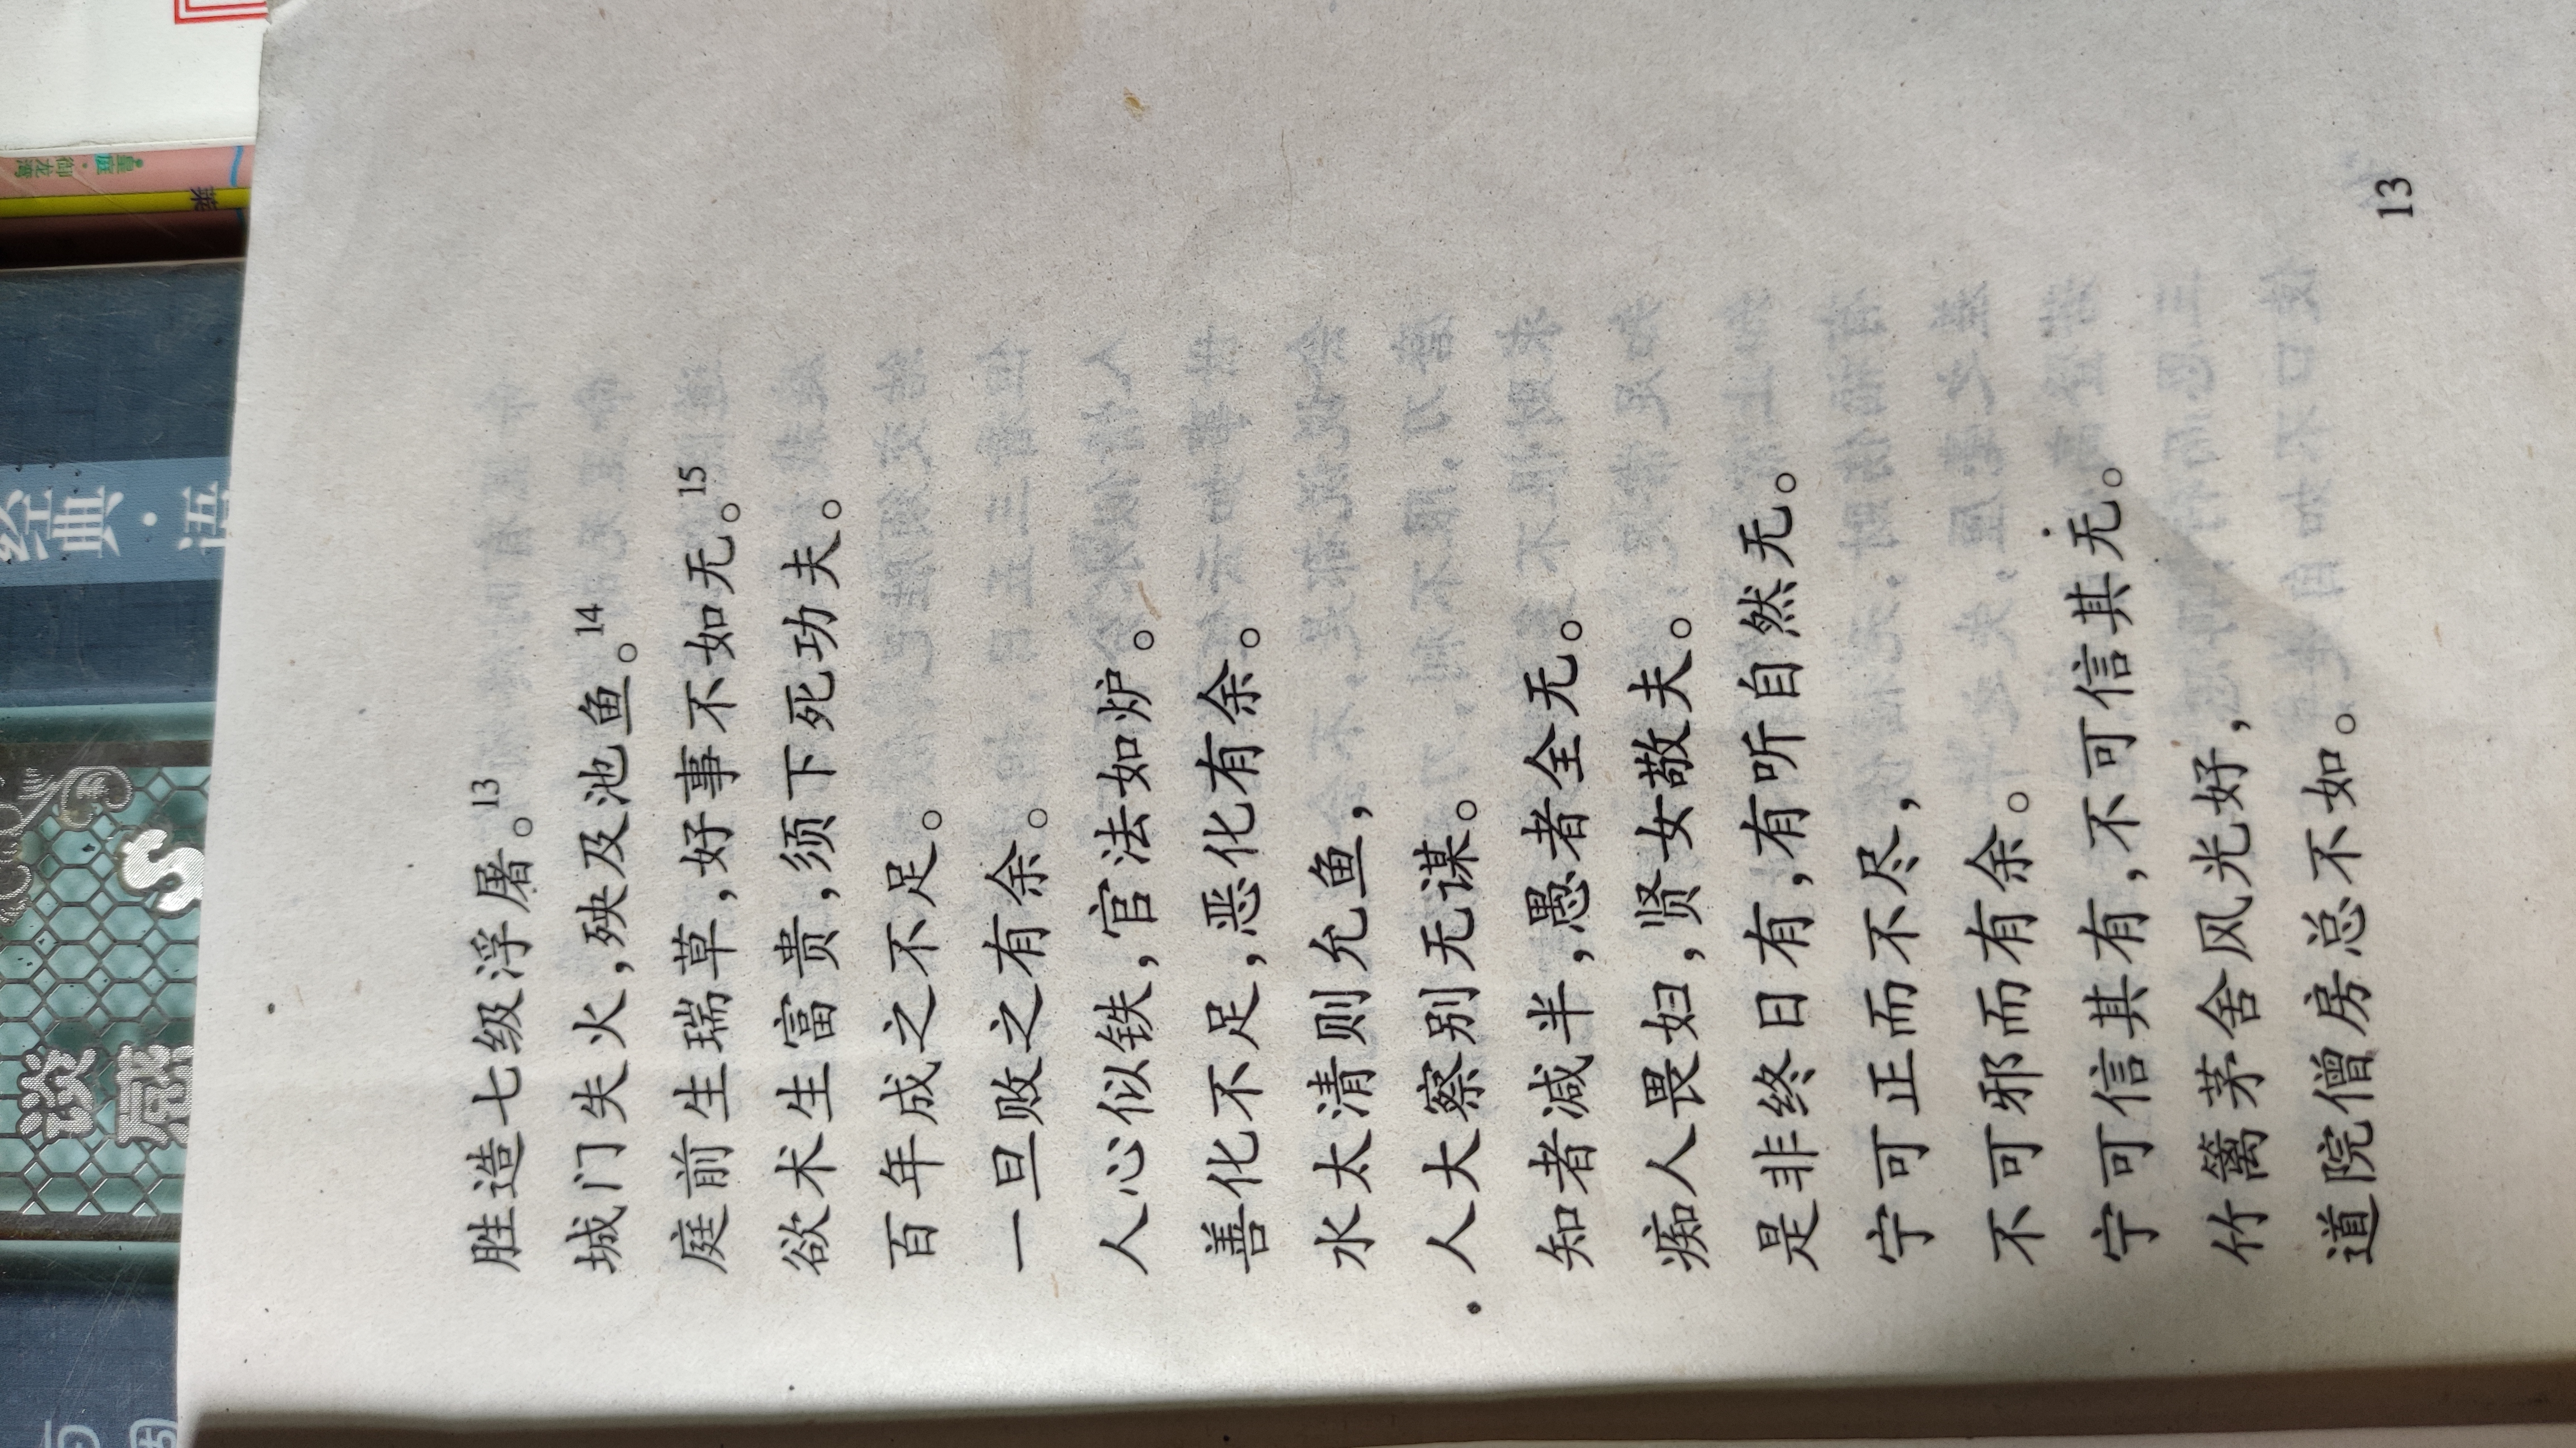 谈感
S
经典·语
胜造七级浮屠。13
城门失火,殃及池鱼。14
庭前生瑞草,好事不如无。15
欲术生富贵,须下死功夫。
百年成之不足。
一旦败之有余。
人心似铁,官法如炉。
善化不足,恶化有余。
水太清则允鱼,
人大察别无谋。
知者减半,愚者全无。
痴人畏妇,贤女敬夫。
是非终日有,有听自然无。
宁可正而不尽,
不可邪而有余。
宁可信其有,不可信其无。
竹篱茅舍风光好,
道院僧房总不如。
13